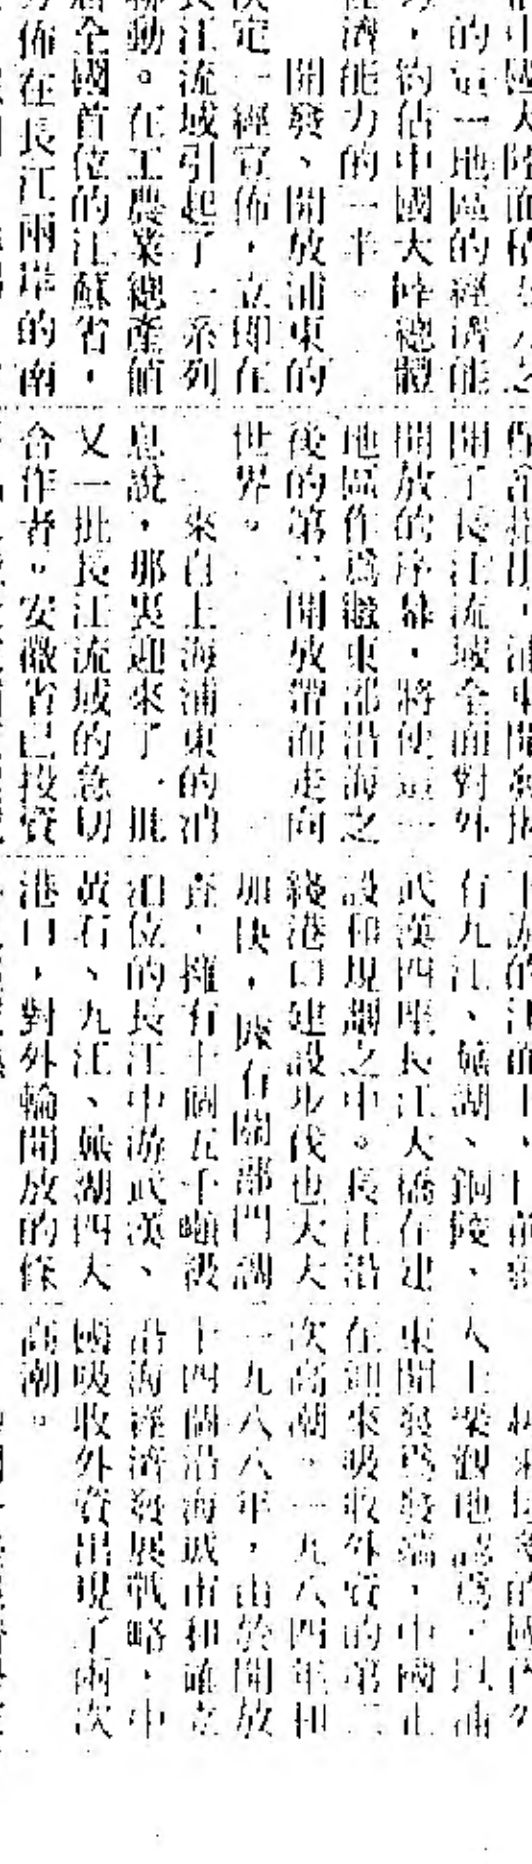 的這一地區的經濟能
，約佔中國大陸總體
經濟能力的一半。
開發、開放浦東的
決定一經宣佈，立即在
長江流域引起了一系列
聯動。在工農業總產值
居全國首位的江蘇省，
分佈在長江兩岸的南
開了長江流域全面對外
開放的序幕，將使這一
地區作為繼東部沿海之
後的第二開放帶而走向
世界。
來自上海浦東的消
息說，那裏迎來了一批
又一批長江流域的急切
合作者。安徽省已投資
有九江、蕪湖、銅陵、
武漢四座長江大橋在建
設和規劃之中。長江沿
綫港口建設步伐也大大
加快，據有關部門調
查，擁有十個五千噸級
泊位的長江中游武漢、
黃石、九江、蕪湖四大
港口，對外輪開放的條
人士樂觀地認為，以浦
東開發為發端，中國正
在迎來吸收外資的第三
次高潮。一九八四年和
一九八八年，由於開放
十四個沿海城市和確立
沿海經濟發展戰略，中
國吸收外資出現了兩次
高潮。